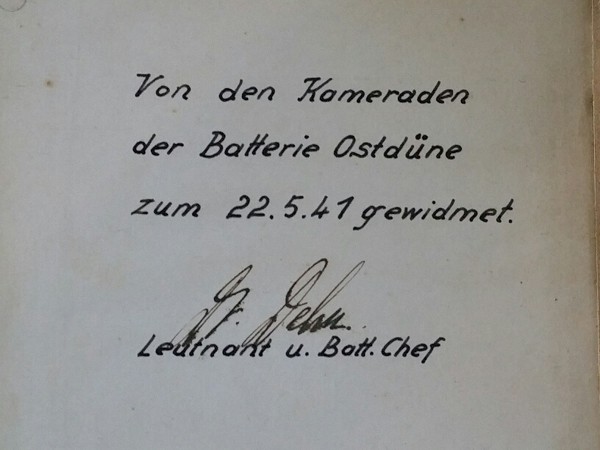 Von den Kameraden
der Batterie Ostdüne
zum 22.5.41 gewidmet.
Leutnant u. Batt. Chef